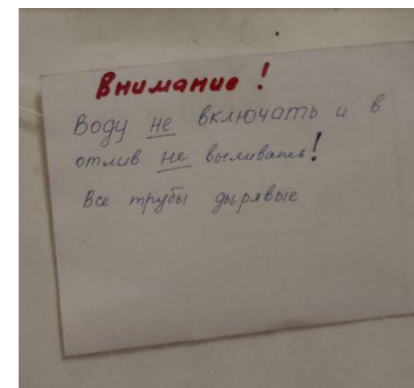 Внимание !
Воду не включать и в
отлив не выливать!
Все трубы дырявые